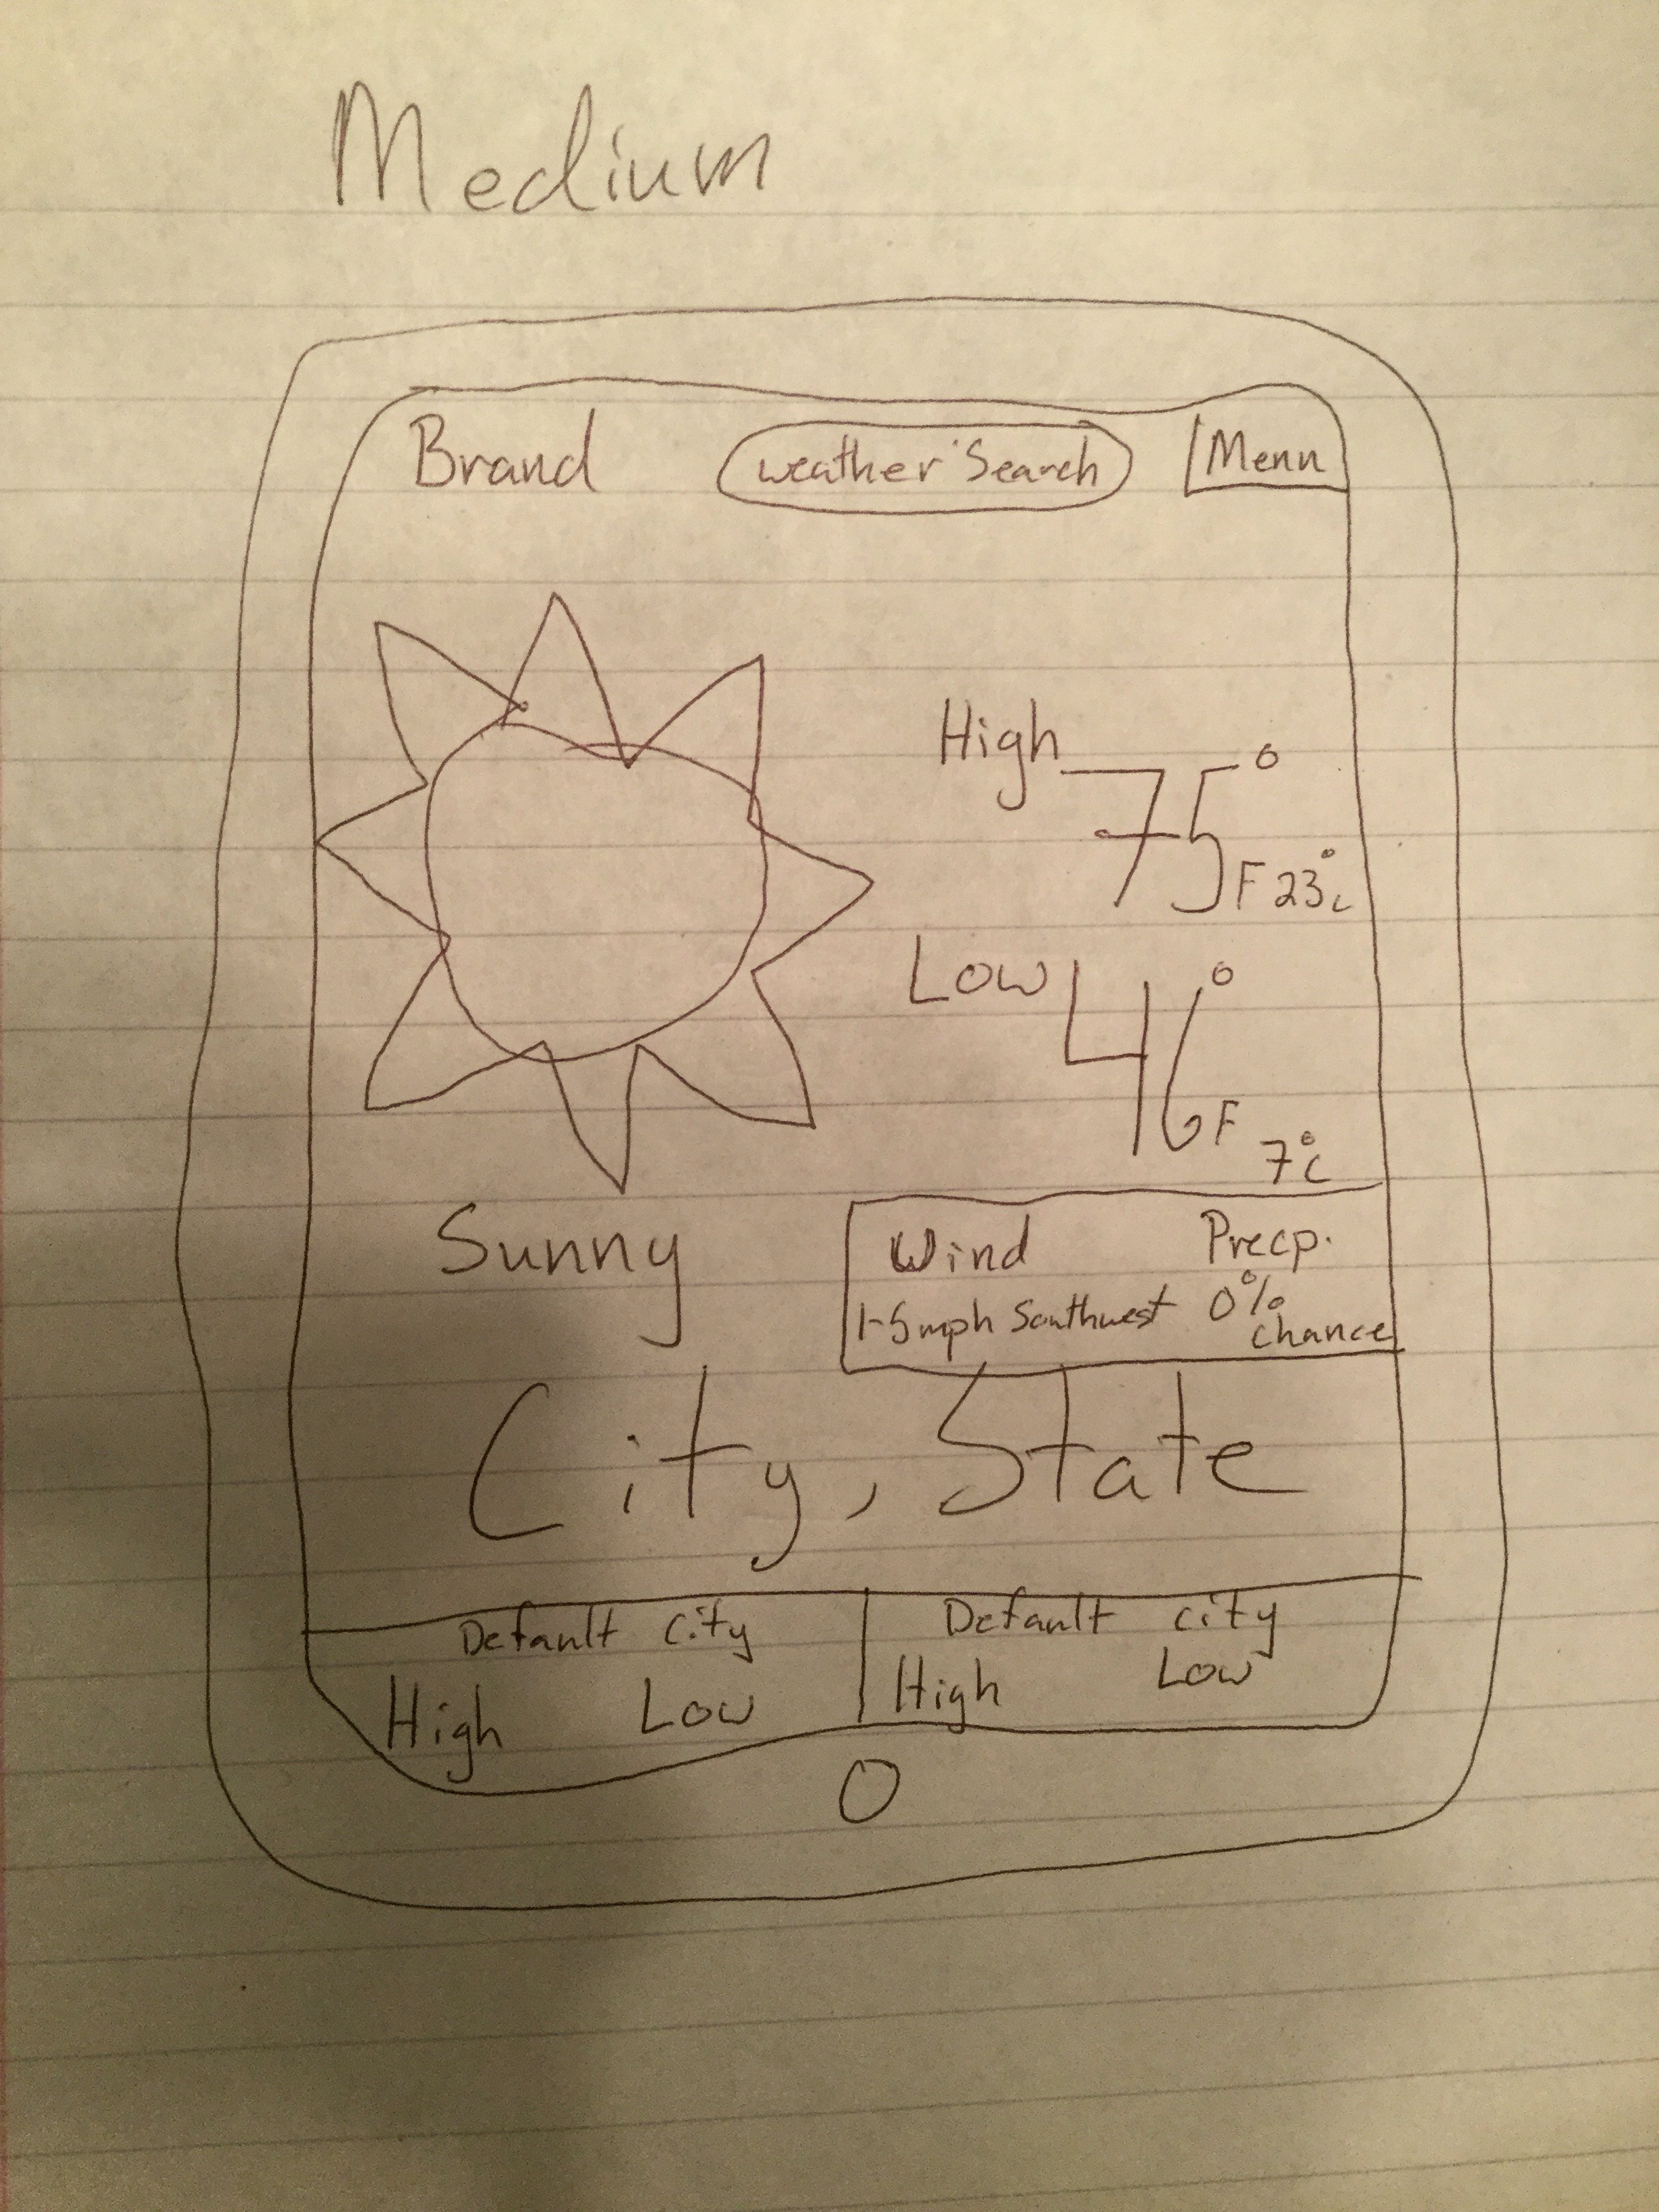 Medium
Brand weather Search Menu
High 75° F 23°c
Low 46° F 7°c
Sunny
Wind Precp.
1-5mph Southwest 0% chance
City, State
Default City Default city
High Low High Low